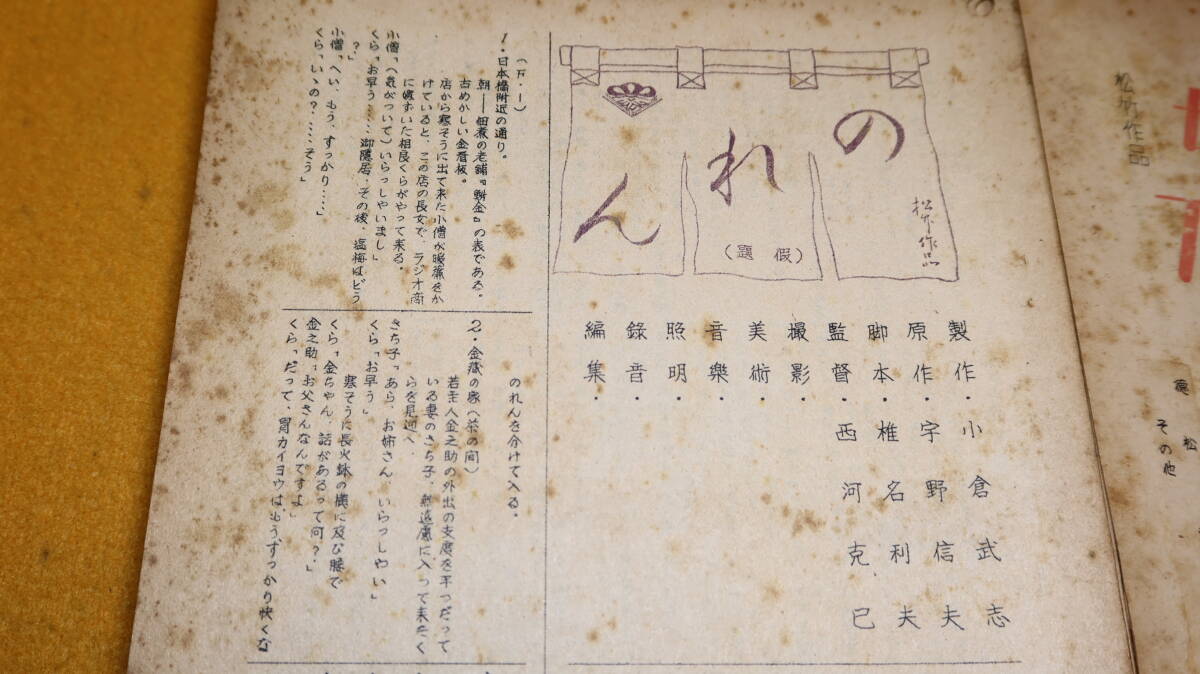 松竹作品
徳松
その他
のれん
(假題)
松竹作品
製作・小倉武志
原作・宇野信夫
脚本・椎名利夫
監督・西河克巳
撮影・
美術・
音樂・
照明・
錄音・
編集・
(F・I)
1・日本橋附近の通り。
朝――佃煮の老舗『鮒金』の表である。
古めかしい金看板。
店から寒そうに出て来た小僧が暖簾をか
けていると、この店の長女で、ラジオ商
に嫁ずいた相良くらがやって来る。
小僧「(気がついて)いらっしゃいまし」
くら「お早う……御隠居、その後、塩梅はどう
?」
小僧「へい、もう、すっかり……」
くら「いゝの?……そう」
のれんを分けて入る。
2・金蔵の家(茶の間)
若主人金之助の外出の支度を手つだって
いる妻のさち子、無遠慮に入って来たく
らを見迎へ、
さち子「あら、お姉さん、いらっしゃい」
くら「お早う」
寒そうに長火鉢の横に及び腰で
くら「金ちゃん、話があるって何?」
金之助「お父さんなんですよ」
くら「だって、胃カイヨウは、もうすっかり快くな